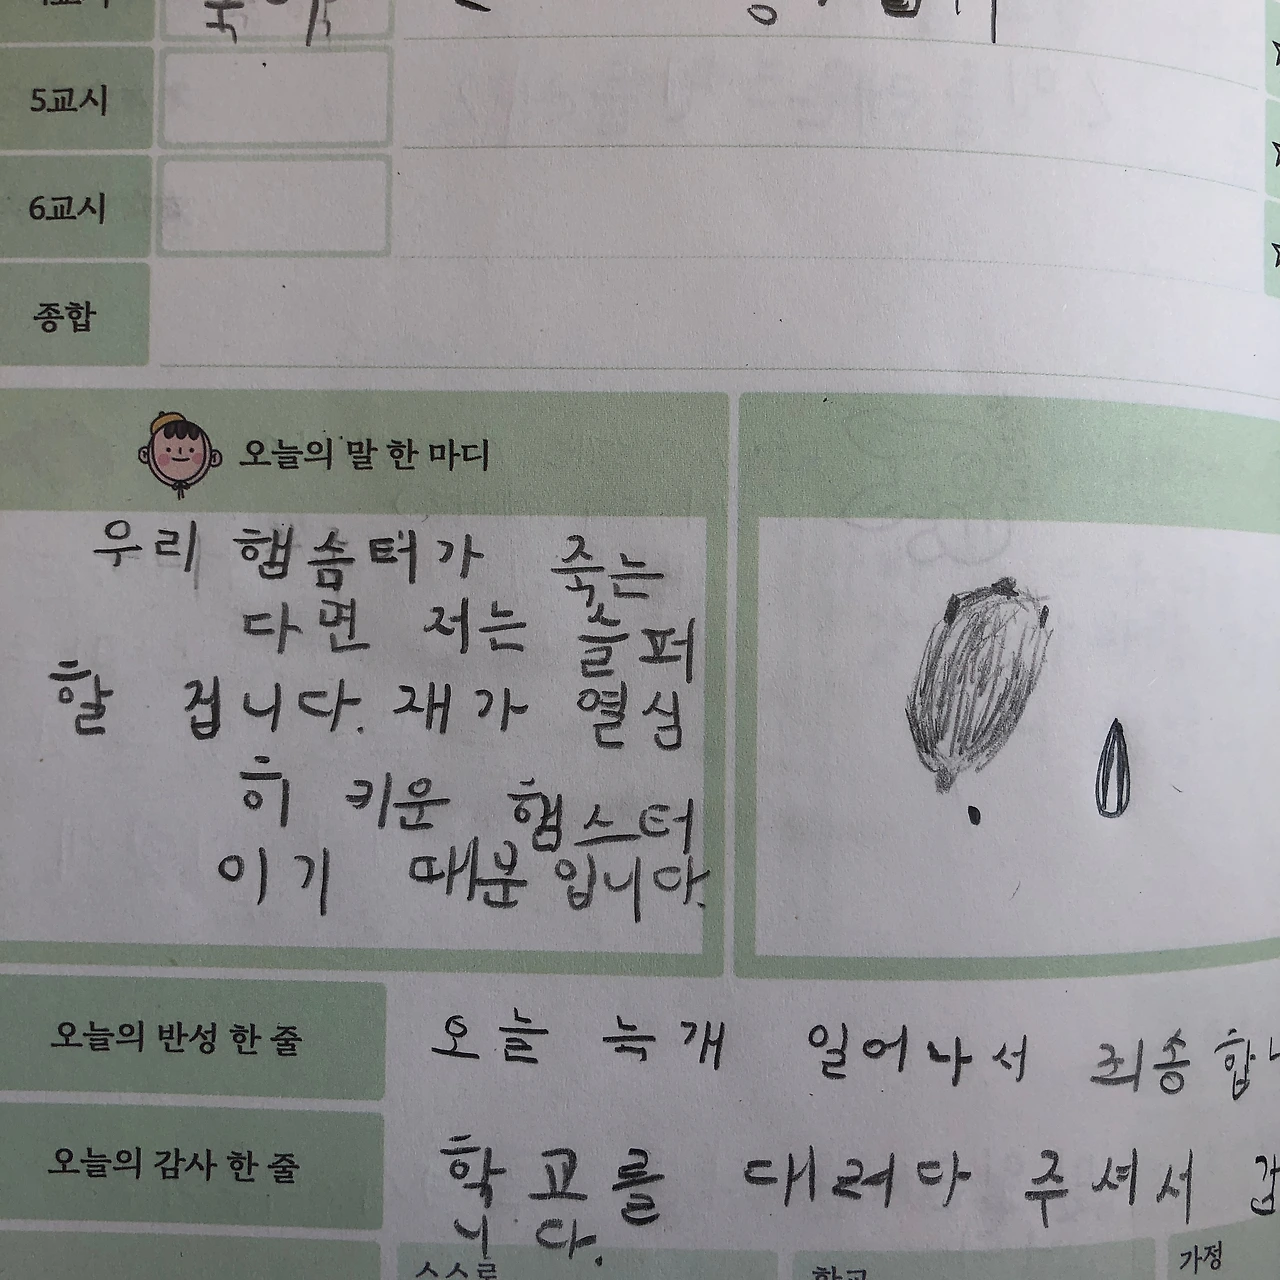 5교시
6교시
종합
오늘의 말 한 마디
우리 햄솜터가 죽는
다면 저는 슬퍼
할 겁니다. 재가 열심
히 키운 햄스터
이기 때분입니다.
오늘의 반성 한 줄
오늘 늑개 일어나서 죄송합니
오늘의 감사 한 줄
학교를 대려다 주셔서
니다.
스스로
학교
가정